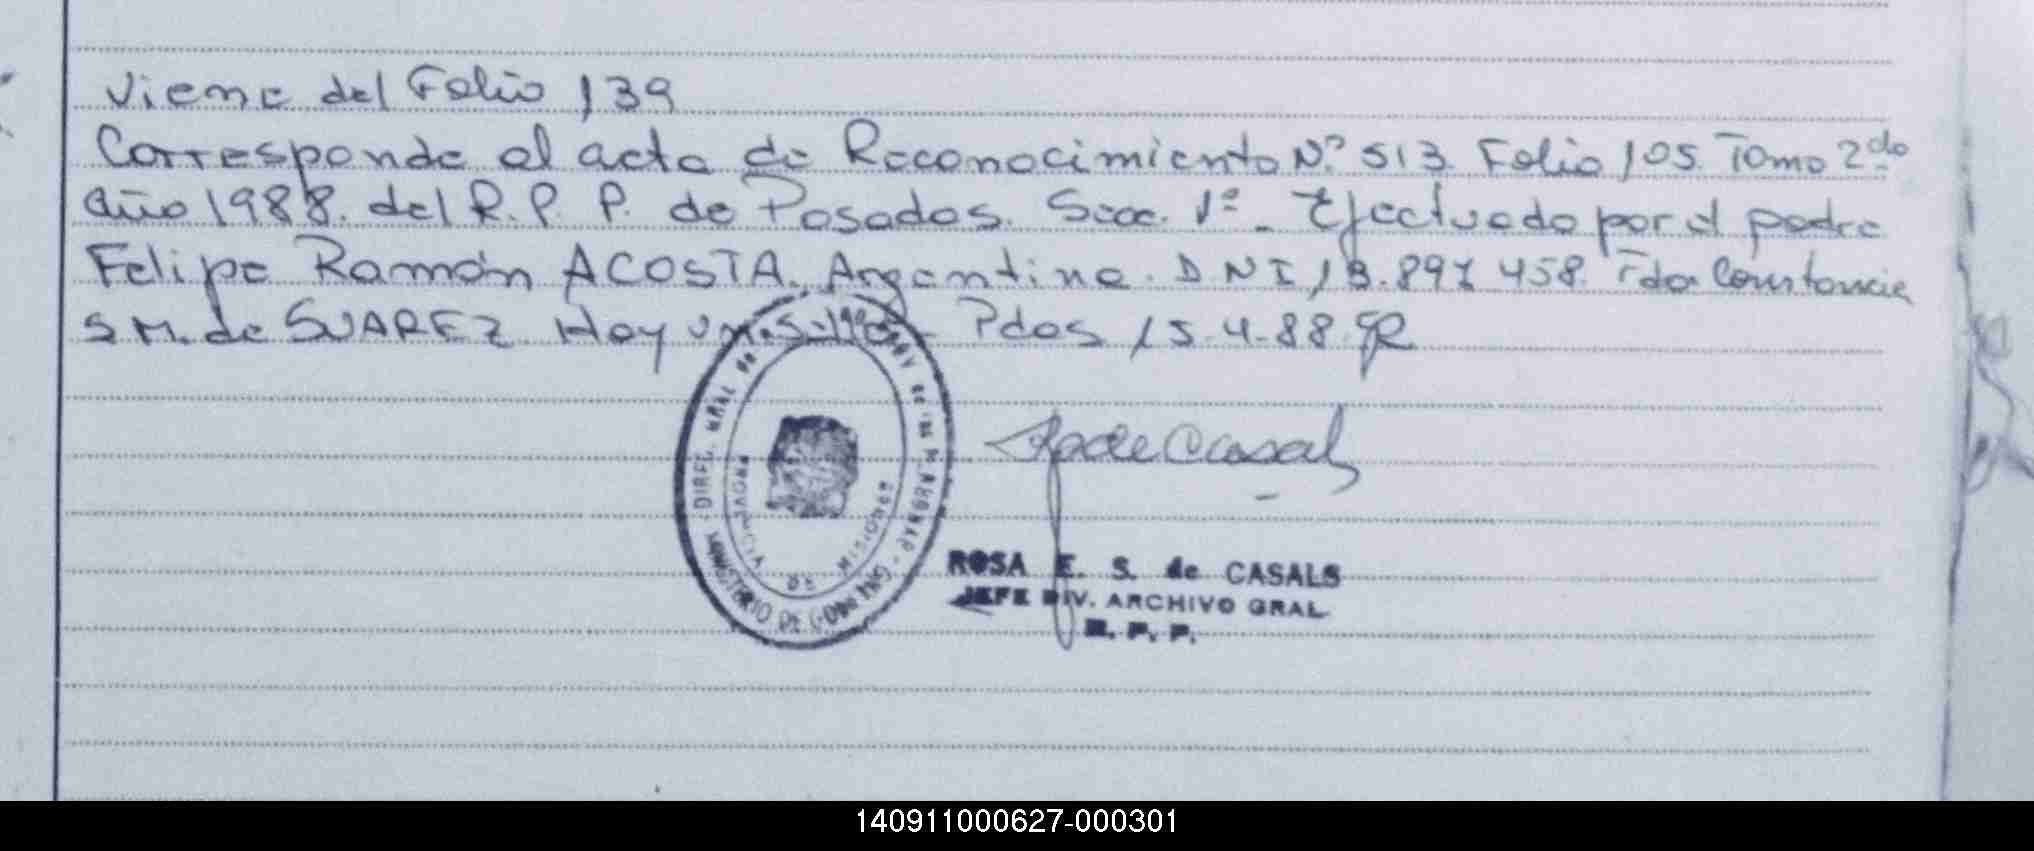 Viene del Folio 139
Corresponde al acta de Reconocimiento Nº 513. Folio 105. Tomo 2do
Año 1988. del R. P. P. de Posadas. Secc. 1º - Efectuado por el padre
Felipe Ramón ACOSTA. Argentino. D N I 13.897 458. Fda Constancia
S M. de SUAREZ. Hay un Sello - Pdas 15-4-88.
DIREC. GRAL DE
PROVINCIA DE MISIONES
MINISTERIO DE GOBIERNO
de Casals
ROSA E. S. de CASALS
JEFE DIV. ARCHIVO GRAL.
R. P. P.
140911000627-000301